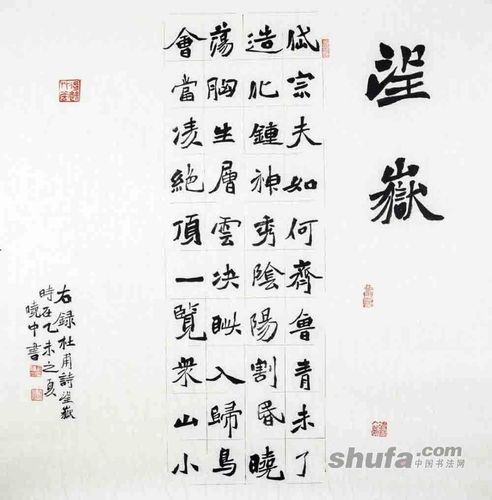 望嶽
岱宗夫如何齊魯青未了
造化鍾神秀陰陽割昏曉
蕩胸生層雲决眦入歸鳥
會當凌絕頂一覽衆山小
右録杜甫詩望嶽
時在乙未之夏
曉中書
shufa.com
中国书法网